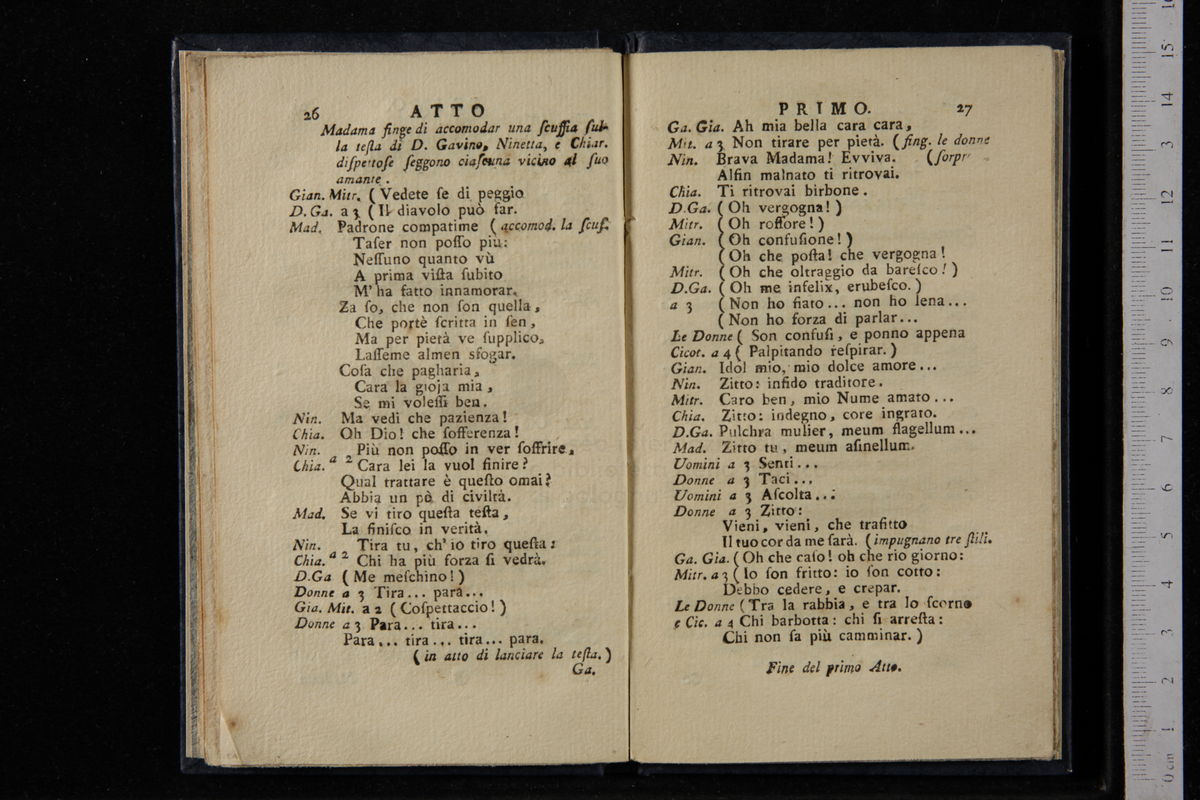 26 ATTO
Madama finge di accomodar una ſcuffia ſul-
la teſta di D. Gavino, Ninetta, e Chiar.
diſpettoſe ſeggono ciaſcuna vicino al ſuo
amante.
Gian. Mitr. ( Vedete ſe di peggio
D. Ga. a 3 ( Il diavolo può far.
Mad. Padrone compatime ( accomod. la ſcuf.
Taſer non poſſo più:
Neſſuno quanto vù
A prima viſta ſubito
M' ha fatto innamorar.
Za ſo, che non ſon quella,
Che portè ſcritta in ſen,
Ma per pietà ve ſupplico,
Laſſeme almen sfogar.
Coſa che pagharia,
Cara la gioja mia,
Se mi voleſſi ben.
Nin. Ma vedi che pazienza!
Chia. Oh Dio! che ſofferenza!
Nin. Più non poſſo in ver ſoffrire,
Chia. a 2 Cara lei la vuol finire?
Qual trattare è queſto omai?
Abbia un pò di civiltà.
Mad. Se vi tiro queſta teſta,
La finiſco in verità.
Nin. Tira tu, ch' io tiro queſta:
Chia. a 2 Chi ha più forza ſi vedrà.
D.Ga ( Me meſchino! )
Donne a 3 Tira... para...
Gia. Mit. a 2 ( Coſpettaccio! )
Donne a 3 Para... tira...
Para... tira... tira... para.
( in atto di lanciare la teſta. )
Ga.
PRIMO. 27
Ga. Gia. Ah mia bella cara cara,
Mit. a 3 Non tirare per pietà. ( fing. le donne
Nin. Brava Madama! Evviva. (ſorpr
Alfin malnato ti ritrovai.
Chia. Ti ritrovai birbone.
D.Ga. ( Oh vergogna! )
Mitr. ( Oh roſſore! )
Gian. ( Oh confuſione! )
( Oh che poſta! che vergogna!
Mitr. ( Oh che oltraggio da bareſco! )
D.Ga. ( Oh me infelix, erubeſco. )
a 3 ( Non ho fiato... non ho lena...
( Non ho forza di parlar...
Le Donne ( Son confuſi, e ponno appena
Cicot. a 4 ( Palpitando reſpirar. )
Gian. Idol mio, mio dolce amore...
Nin. Zitto: infido traditore.
Mitr. Caro ben, mio Nume amato...
Chia. Zitto: indegno, core ingrato.
D.Ga. Pulchra mulier, meum flagellum...
Mad. Zitto tu, meum aſinellum.
Uomini a 3 Senti...
Donne a 3 Taci...
Uomini a 3 Aſcolta...
Donne a 3 Zitto:
Vieni, vieni, che trafitto
Il tuo cor da me ſarà. ( impugnano tre ſtili.
Ga. Gia. ( Oh che caſo! oh che rio giorno:
Mitr. a 3 ( Io ſon fritto: io ſon cotto:
Debbo cedere, e crepar.
Le Donne ( Tra la rabbia, e tra lo ſcorno
e Cic. a 4 Chi barbotta: chi ſi arreſta:
Chi non ſa più camminar. )
Fine del primo Atto.